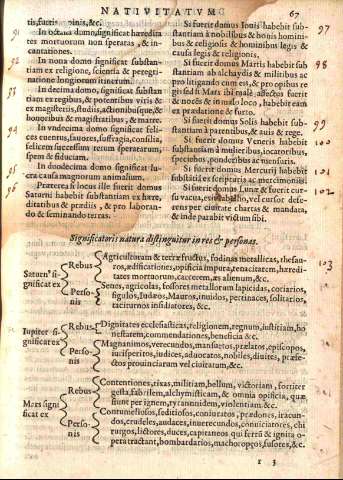 NATIVITATVM
67
tis, fautores ... ninis, &c.
91 In octaua domo, significat hæredita
tes mortuorum non speratas, & in-
cantationes.
92 In nona domo significat substan-
tiam ex religione, scientia & peregri-
natione longiorum itinerum.
93 In decima domo, significat substan
tiam ex regibus, & potentibus viris &
ex magisterijs, studijs, actionibusque, &
honoribus & magistratibus, & matre.
94 In vndecima domo significat felic
ces euentus, fauores, suffragia, consilia,
felicem successum rerum speratarum,
spem & fiduciam.
95 In duodecima domo significat lu-
cra causa magnorum animalium.
96 Præterea si locus ille fuerit domus
Saturni habebit substantiam ex hære,
ditatibus & prædiis, & pro laboran-
do & seminando terras.
Si fuerit domus Iouis habebit sub- 97
stantiam à nobilibus & honis homini
bus & religiosis & hominibus legis &
causa legis & religionis.
Si fuerit domus Martis habebit sub 98
stantiam ab alchaydis & militibus ac
pro litigando cum eis, & pro opibus re
gis sed si Mars ibi male affectus fuerit
& nocēs & in malo loco, habebit eam
ex prædatione & furto.
Si fuerit domus Solis habebit sub- 99
stantiam à parentibus, & auis & rege.
Si fuerit domus Veneris habebit 100
substantiam à mulieribus, iocatoribus,
speciebus, ponderibus ac mensuris.
Si fuerit domus Mercurij habebit 101
substātiā ex scripturis ac mercimonijs.
Si fuerit domus Lunæ & fuerit cur- 102
su vacua, erit baiulus, vel cursor defe-
rens per ciuitate chartas & mandata,
& inde parabit victum sibi.
Significatoris natura distinguitur in res & personas.
Saturn9 si-
gnificat ex
Rebus
Agriculturam & terræ fructus, fodinas metallicas, thesau- 103
ros, ædificationes, opificia impura, tenacitatem, hæredi-
tates mortuorum, carcerem, æs alienum, &c.
Perso-
nis
Senes, agricolas, fossores metallorum lapicidas, coriarios,
figulos, Iudæos, Mauros, inuidos, pertinaces, solitarios,
taciturnos insidiatores, &c.
Iupiter si-
gnificat ex
Rebus
Dignitates ecclesiasticas, religionem, regnum, iustitiam, ho
nestatem, commendationes, beneficia &c.
Perso-
nis
Magnanimos, verecundos, mansuetos, prælatos, episcopos,
iurisperitos, iudices, aduocatos, nobiles, diuites, præfe-
ctos prouinciarum vel ciuitatum, &c.
Mars signi
ficat ex
Rebus
Contentiones, rixas, militiam, bellum, victoriam, fortiter
gesta, fabrilem, alchymisticam, & omnia opificia, quæ
fiunt per ignem, tyrannidem, violentiam &c.
Perso-
nis
Contumeliosos, seditiosos, coniuratos, prædones, iracun-
dos, crudeles, audaces, inuerecundos, conuiciatores, chi
rurgos, lictores, duces, capitaneos qui ferrū & ignita o-
pera tractant, bombardarios, machoropeos, fusores, &c.
I 3